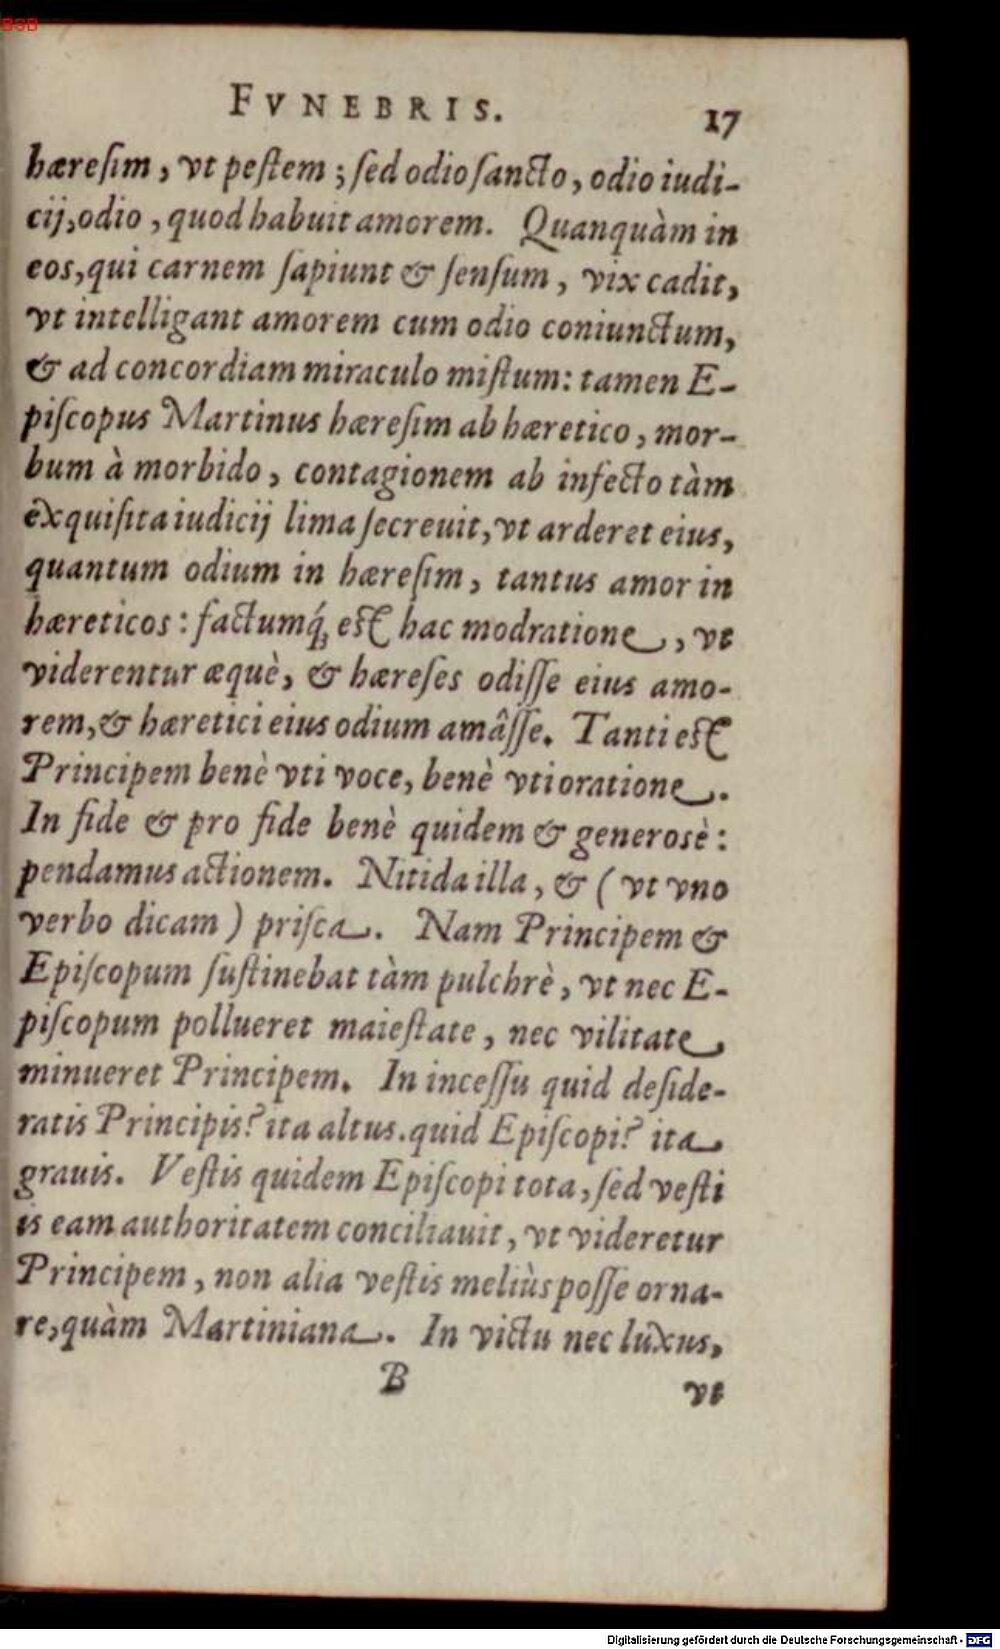 BSB
FVNEBRIS. 17
hæreſim, vt peſtem; ſed odio ſancto, odio iudi-
cij, odio, quod habuit amorem. Quanquàm in
eos, qui carnem ſapiunt & ſenſum, vix cadit,
vt intelligant amorem cum odio coniunctum,
& ad concordiam miraculo miſtum: tamen E-
piſcopus Martinus hæreſim ab hæretico, mor-
bum à morbido, contagionem ab infecto tàm
exquiſita iudicij lima ſecreuit, vt arderet eius,
quantum odium in hæreſim, tantus amor in
hæreticos: factumq́; eſt hac modratione, vt
viderentur æquè, & hæreſes odiſſe eius amo-
rem, & hæretici eius odium amâſſe. Tanti eſt
Principem benè vti voce, benè vti oratione.
In fide & pro fide benè quidem & generosè:
pendamus actionem. Nitida illa, & (vt vno
verbo dicam) priſca. Nam Principem &
Epiſcopum ſuſtinebat tàm pulchrè, vt nec E-
piſcopum pollueret maieſtate, nec vilitate
minueret Principem. In inceſſu quid deſide-
ratis Principis? ita altus. quid Epiſcopi? ita
grauis. Veſtis quidem Epiſcopi tota, ſed veſti
is eam authoritatem conciliauit, vt videretur
Principem, non alia veſtis meliùs poſſe orna-
re, quàm Martiniana. In victu nec luxus,
B vt
Digitalisierung gefördert durch die Deutsche Forschungsgemeinschaft - DFG